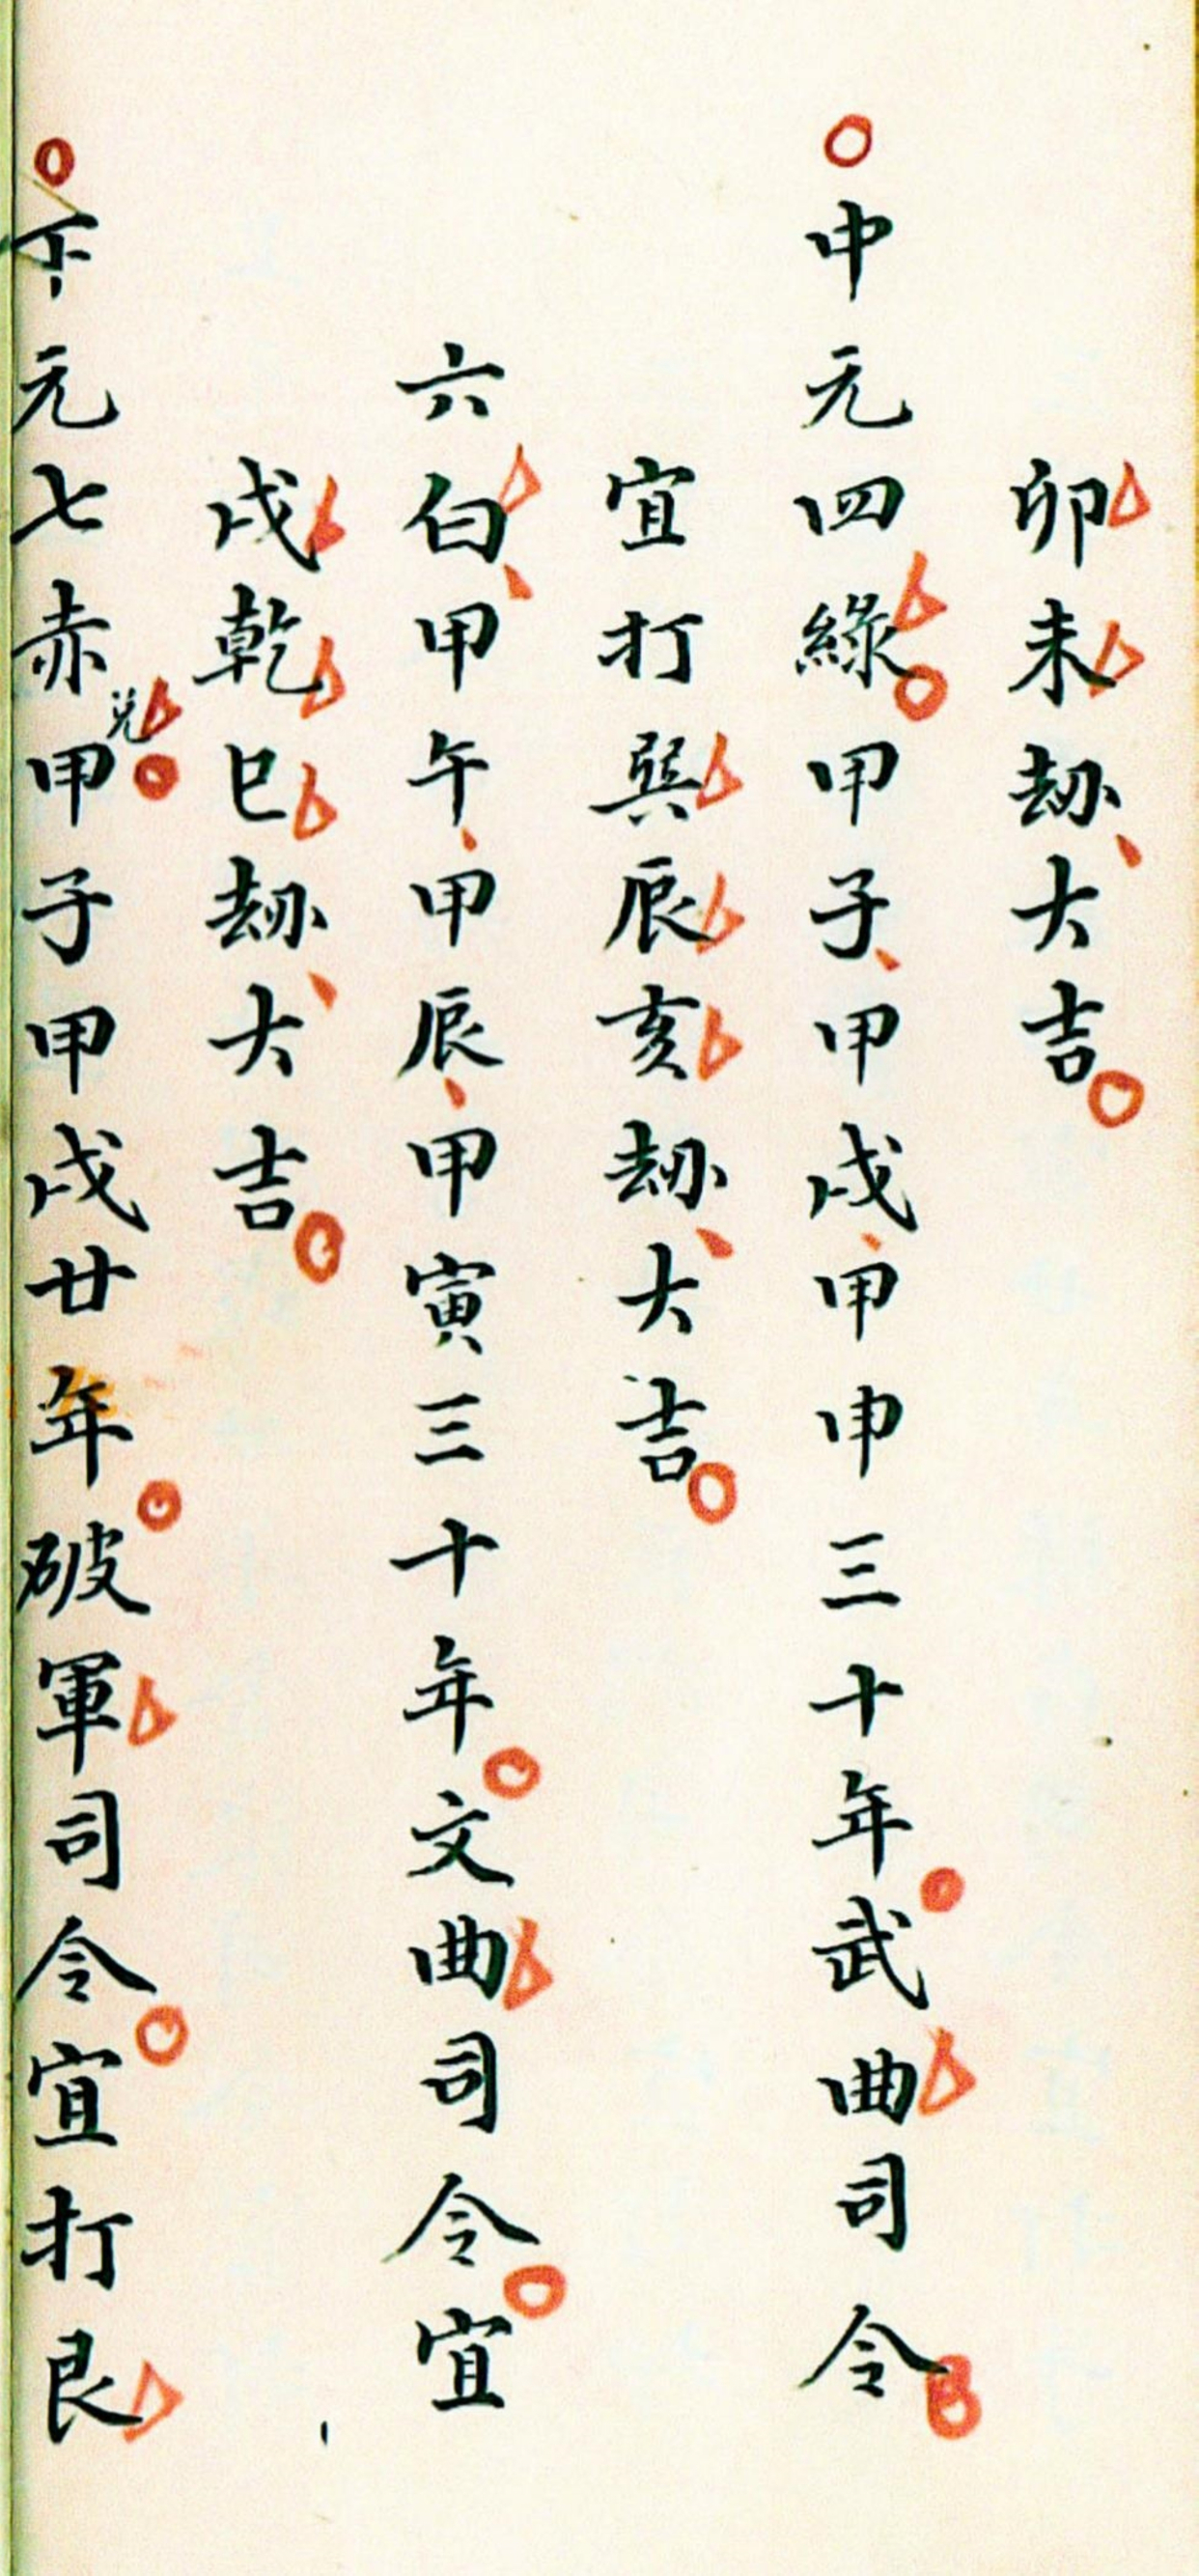 卯未劫大吉
中元四綠甲子甲戌甲申三十年武曲司令
宜打巽辰亥劫大吉
六白甲午甲辰甲寅三十年文曲司令宜
戌乾巳劫大吉
下元七赤兌甲子甲戌廿年破軍司令宜打艮